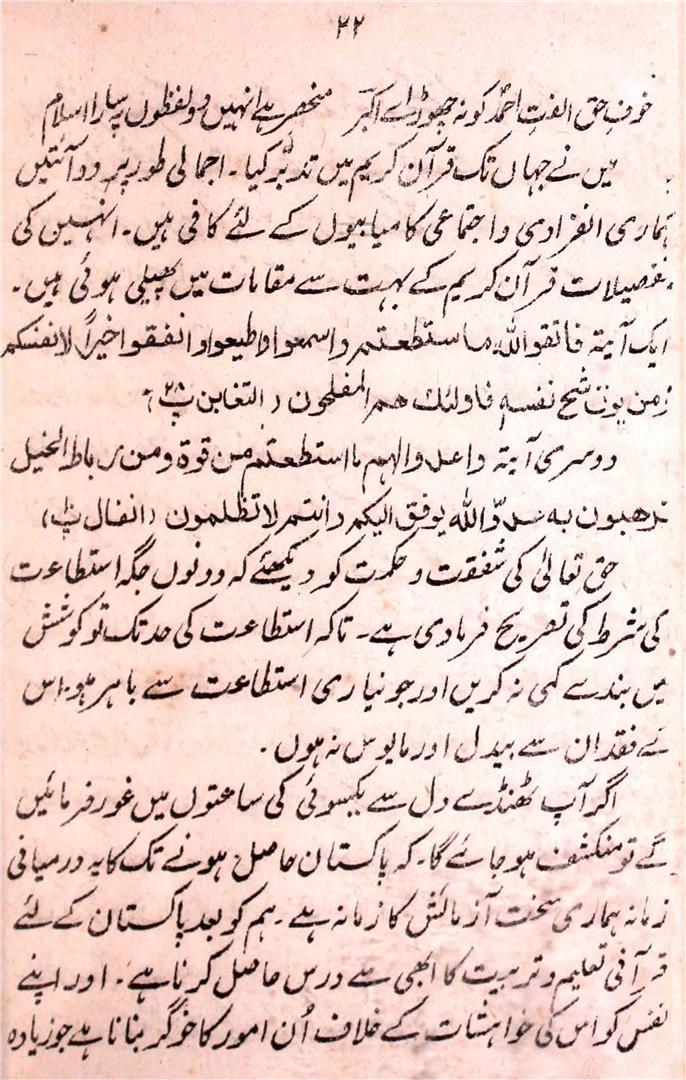 ۲۲
خوفِ حق الفتِ احمد کو نہ چھوڑ اے اکبر منحصر ہے انہیں دو لفظوں پہ سارا اسلام
میں نے جہاں تک قرآن کریم میں تدبّر کیا۔ اجمالی طور پر دو آئتیں
ہماری انفرادی و اجتماعی کامیابیوں کے لئے کافی ہیں۔ انہیں کی
تفصیلات قرآن کریم کے بہت سے مقامات میں پھیلی ہوئی ہیں۔
ایک آیۃ فاتقواللہ ماستطعتم واسمعوا واطیعوا وانفقوا خیراً لانفسکم
ومن یوق شح نفسہٖ فاولئک ھم المفلحون (التغابن پ۲۸)
دوسری آیۃ واعدوالہم مااستطعتم من قوۃ ومن رباط الخیل
ترھبون بہ عدوّاللہ یوفق الیکم وانتم لاتظلمون (انفال پ۱۰)
حق تعالیٰ کی شفقت و حکمت کو دیکھئے کہ دونوں جگہ استطاعت
کی شرط کی تصریح فرمادی ہے۔ تاکہ استطاعت کی حد تک تو کوشش
میں بندے کمی نہ کریں اور جو تیاری استطاعت سے باہر ہو۔ اس
کے فقدان سے بیدل اور مایوس نہ ہوں۔
اگر آپ ٹھنڈے دل سے یکسوئی کی ساعتوں میں غور فرمائیں
گے تو منکشف ہو جائے گا۔ کہ پاکستان حاصل ہونے تک کا یہ درمیانی
زمانہ ہماری سخت آزمائش کا زمانہ ہے۔ ہم کو بعد پاکستان کے لئے
قرآنی تعلیم و تربیت کا ابھی سے درس حاصل کرنا ہے۔ اور اپنے
نفس کو اس کی خواہشات کے خلاف اُن امور کا خوگر بنانا ہے جو زیادہ